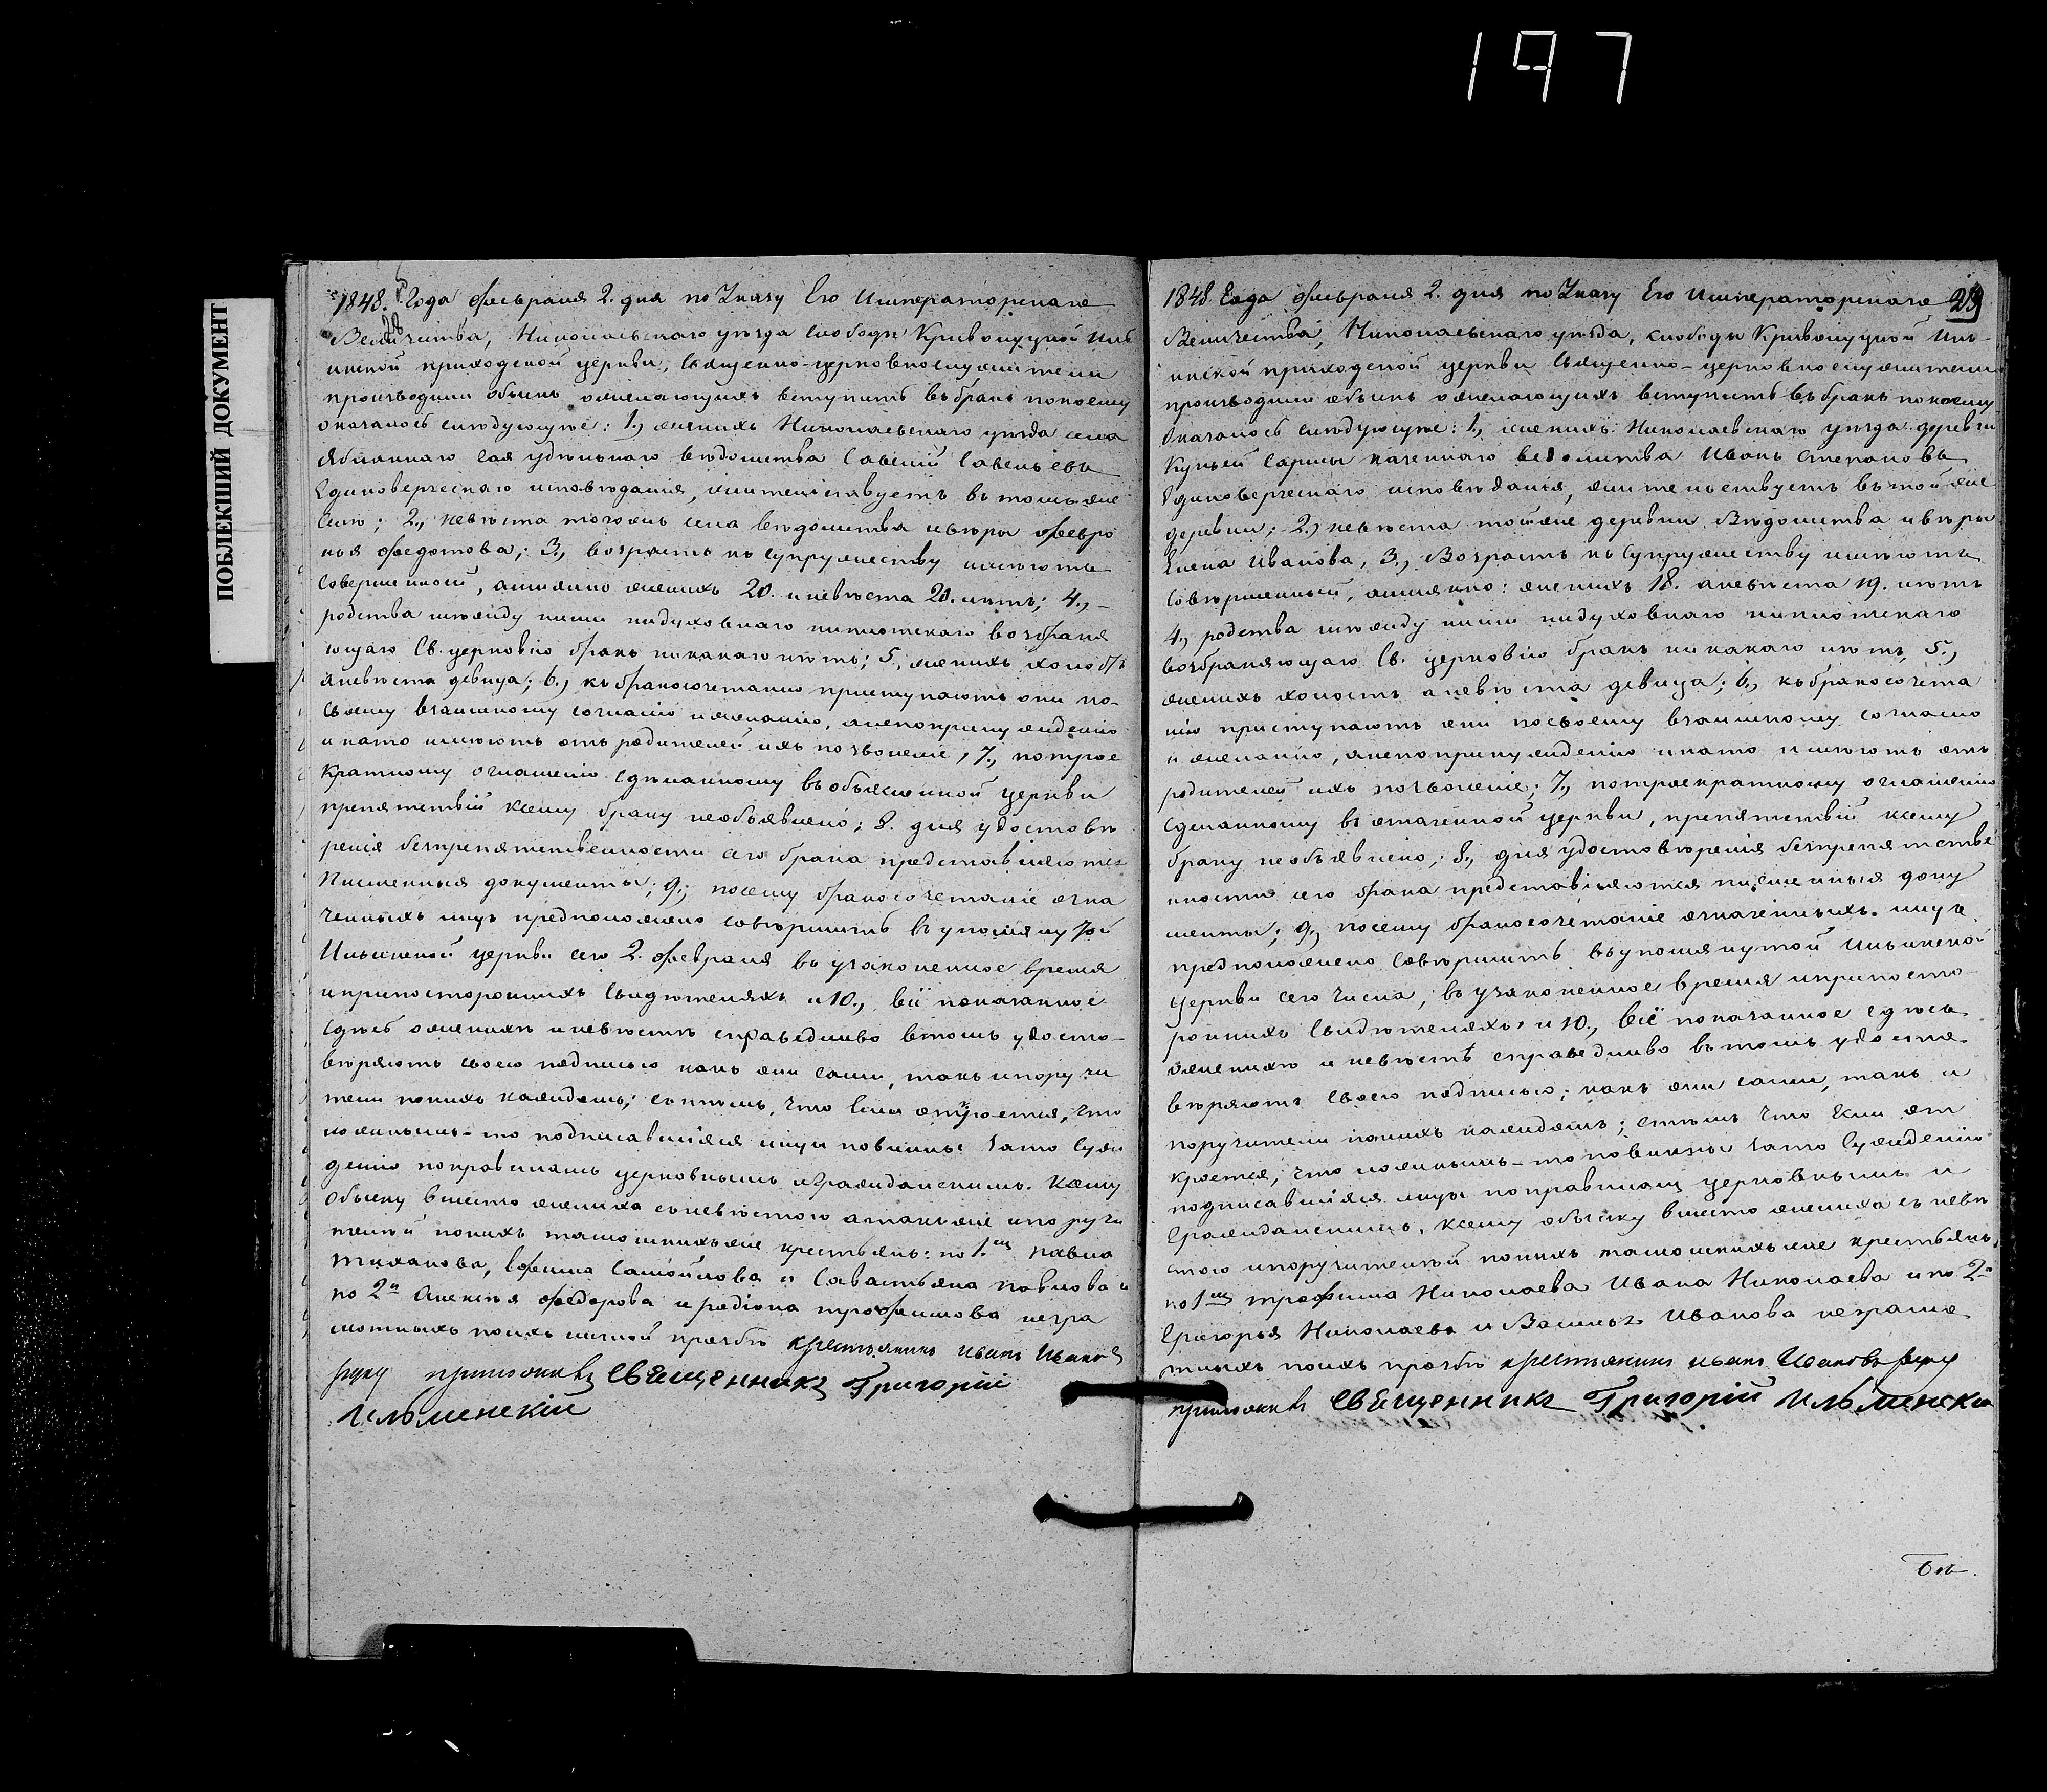 197
ПОБЛЕКШИЙ ДОКУМЕНТ
1848. Года февраля 2. дня по Указу Его Императорскаго
Величества, Николаевскаго уѣзда слободы Криволуцкой Иль
инской приходской церкви, Священно-церковнослужители
производили обыскъ о желающихъ вступить въ бракъ по коему
оказалось слѣдующее: 1., женихъ Николаевскаго уѣзда села
Яблоннаго Гая удѣльнаго вѣдомства Савелій Савельевъ
Единоверческаго исповѣданія, жительствуетъ въ томъ же
селѣ; 2., невѣста тогожъ села вѣдомства и вѣры февро
нья федотова; 3., возрастъ къ супружеству имѣютъ
совершенной, а именно женихъ 20. и невѣста 20. лѣтъ; 4., –
родства между ними ни духовнаго ни плотскаго возбраня
ющаго Св. церковію бракъ никакого нѣтъ; 5., женихъ холостъ
а невѣста девица; 6., къ бракосочетанію приступаютъ они по-
своему взаимному согласію и желанію, а не по принужденію
и на то имѣютъ отъ родителей ихъ позволеніе; 7., по трое
кратному оглашенію сдѣланному въ объясненной церкви
препятствій к сему браку необъявлено; 8. для удостовѣ
ренія безпрепятственности сего брака представляются
Письменныя документы; 9., посему бракосочетаніе озна
ченныхъ лицъ предположено совершить въ упомянутой
Ильинской церкви сего 2. февраля въ узаконенное время
и при постороннихъ свидѣтеляхъ и 10., всё показанное
сдѣсь о женихѣ и невѣстѣ справедливо втомъ удосто-
вѣряютъ своею подписью какъ они сами, такъ и поручи
тели по нихъ каждомъ; съ тѣмъ, что если откроется, что
ложнымъ-то подписавшіяся лицы повинны зато Сужд
денію по правиламъ церковнымъ и Гражданскимъ. К сему
обыску вместо жениха съ невѣстою а такъ же и поручи
телей по нихъ тамошнихъ же крестьянъ: по 1.мъ павла
тиханова, Ефима Самойлова и Савастьяна павлова и
по 2й Алексѣя федорова и родіона трофимова негра
мотныхъ по ихъ личной прозбѣ крестьянинъ иванъ Ивановъ
руку приложилъ Священникъ Григорій
Ильменскій
1848 Года февраля 2. дня по Указу Его Императорскаго 29
Величества, Николаевскаго уѣзда, слободы Криволуцкой Иль-
инской приходской церкви Священно-церковнослужители
производили обыскъ о желающихъ вступить въ бракъ по коему
Оказалось слѣдующее: 1., женихъ Николаевскаго уѣзда деревни
Купьей Сармы казеннаго ведомства Иванъ Степановъ
Единоверческаго исповѣданія, жительствуетъ въ той же
деревни; 2., невѣста той же деревни Вѣдомства и вѣры
Елена Иванова, 3., Возрастъ къ Супружеству имѣютъ
совершенный, а именно: женихъ 18. а невѣста 19. лѣтъ
4., родства между ними ни духовнаго ни плотскаго
возбраняющаго Св. церковію бракъ никакого нѣтъ, 5.,
женихъ холостъ а невѣста девица; 6., къ бракосочета
нію приступаютъ они по своему взаимному согласію
и желанію, а не по принужденію и на то имѣютъ отъ
родителей ихъ позволеніе; 7., по троекратному оглашенію
Сделанному въ означенной церкви, препятствій к сему
браку необъявлено; 8., для удостовѣренія безпрепятстве
нности сего брака представляются письменныя доку
менты; 9., посему бракосочетаніе означенныхъ лицъ
предположено Совершить въ упомянутой Ильинской
церкви сего числа, въ узаконенное время и при посто-
роннихъ свидѣтеляхъ и 10., всё показанное сдѣсь
о женихѣ и невѣстѣ справедливо въ томъ удосто
вѣряютъ своею подписью; какъ они сами, такъ и
поручители по нихъ каждомъ; с тѣмъ что Если от
кроется, что ложнымъ-то повинны зато Сужденію
подписавшіяся лицы по правиламъ церковнымъ и
Гражданскимъ. К сему обыску вместо жениха съ невѣ
стою и поручителей по нихъ тамошнихъ же крестьянъ,
по 1мъ трофима Николаева Ивана Николаева и по 2й
Григорья Николаева и Василья Иванова неграмо
тныхъ по ихъ прозбѣ крестьянинъ иванъ Ивановъ руку
приложилъ Священникъ Григорій Ильменскій